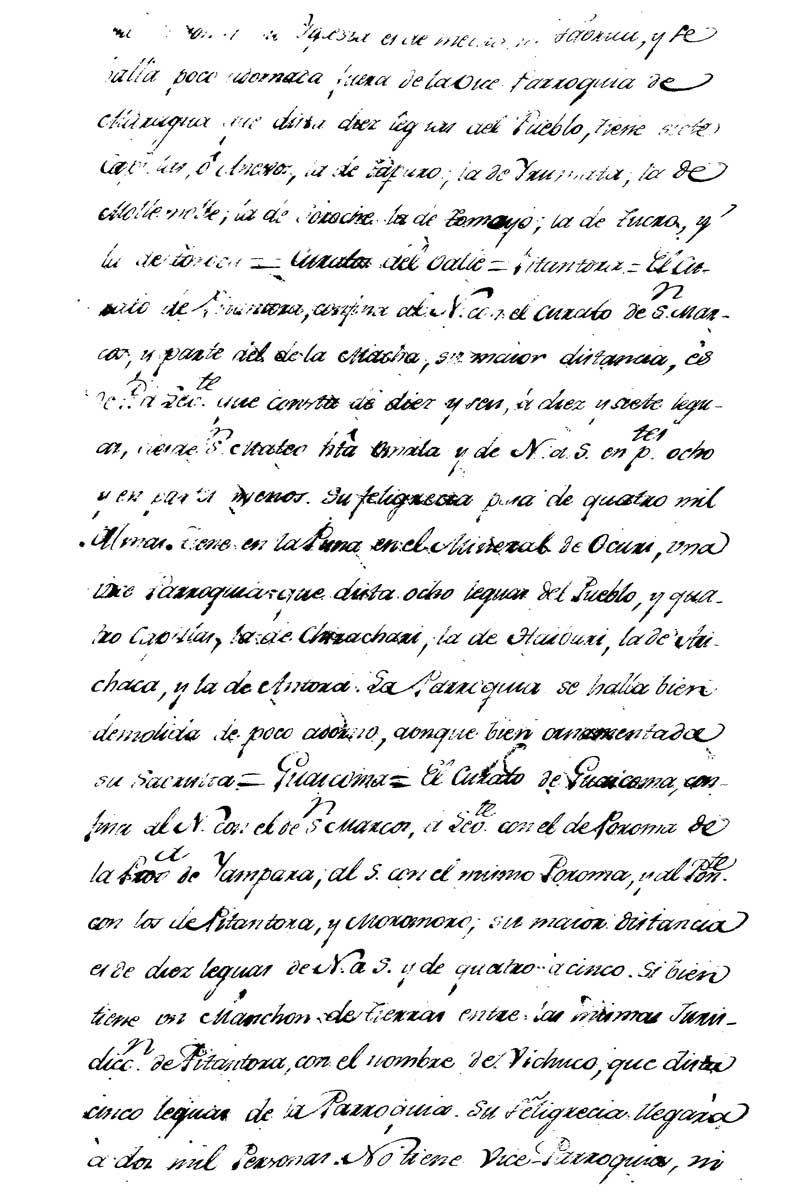 Iglesia es de mediana Fabrica, y se
halla poco adornada fuera de la Vice Parroquia de
Maragua que dista diez leguas del Pueblo, tiene siete
Capillas, ó Anexos, la de Tapuro; la de Vrumata; la de
Mollemolle; la de Soroche la de Tomayo; la de Sucro, y
la de = Curatos del Valle = Pitantora = El Cu-
rato de Pitantora, confina al N. con el Curato de Sn. Mar-
cos, y parte del de la Macha, su maior distancia, és
de Pte. a Lecte. que consta de diez y seis, à diez y siete legu-
as, desde Sn. Mateo htâ Omala y de N. a S. en ptes. ocho
y en partes menos. Su feligrecia pasa de quatro mil
Almas. Tiene en la Puna en el Mineral de Ocuri, vna
Vice Parroquia que dista ocho leguas del Pueblo, y qua-
tro Capillas, la de Chirachari, la de Haiburi, la de Ari-
chaca, y la de Antora. La Parroquia se halla bien
demolida de poco adorno, aonque bien ornamentada
su Sacristia = Guaicoma = El Curato de Guaicoma, con-
fina al N. con el de Sn. Marcos, a Lecte. con el de Poroma de
la Prova. de Yampara, al S. con el mismo Poroma, y al Ponte.
con los de Pitantora, y Moromoro; su maior distancia
es de diez leguas de N. a S. y de quatro a cinco. Si bien
tiene vn Manchon de tierras entre las mismas Juris-
diccn. de Pitantora, con el nombre de Vichuco, que dista
cinco leguas de la Parroquia. Su Feligrecia llegará
à dos mil Personas. No tiene Vice-Parroquias, ni